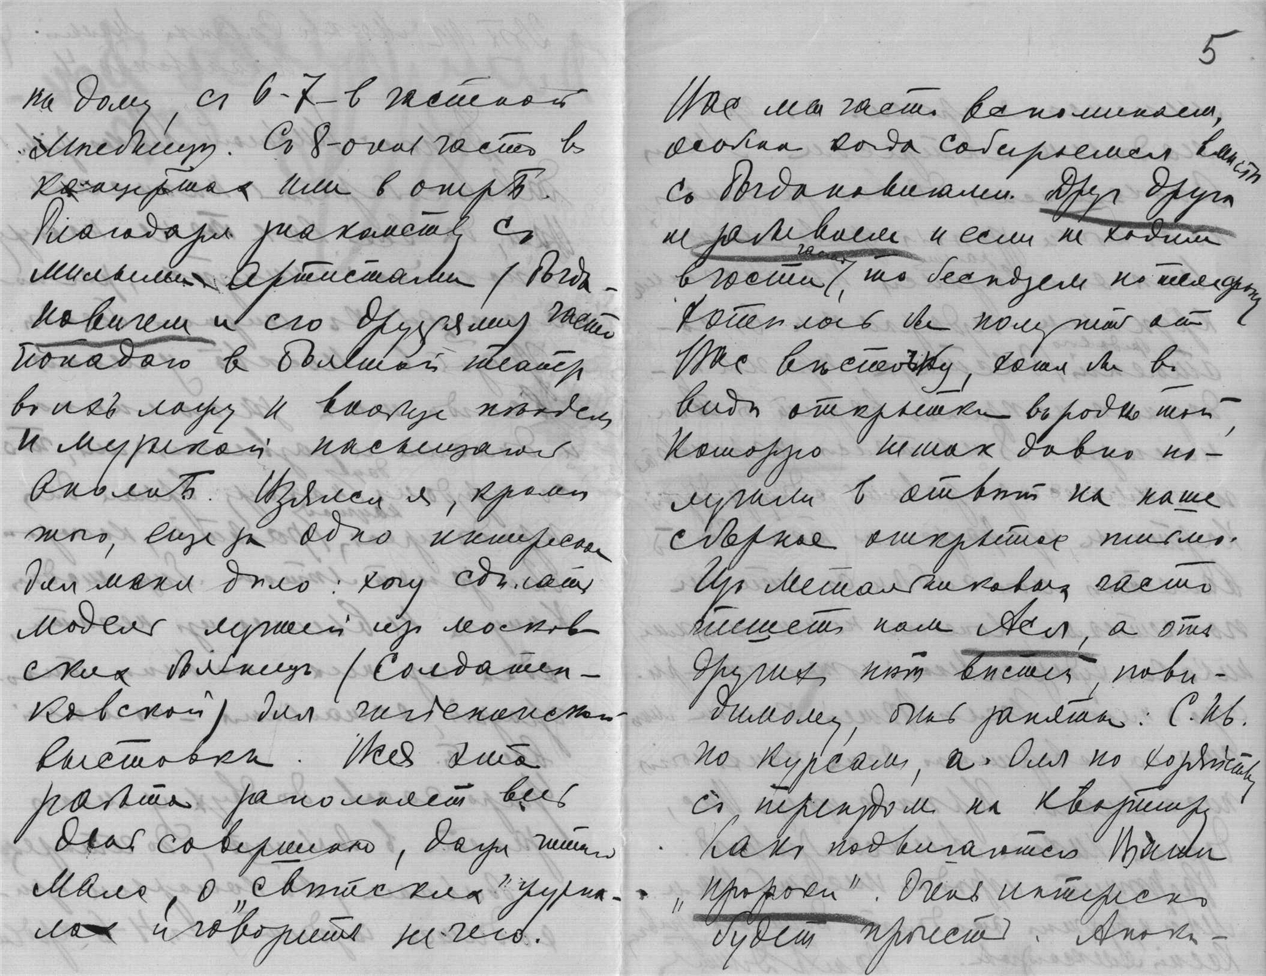 на дому, съ 6-7- в частной
лѣчебницѣ. Съ 8-они часто въ
концертах или в оперѣ.
Благодаря знакомству съ
милыми артистами (Богда-
новичем и его друзьями) часто
попадаю в Большой театр
въ ихъ ложу и вполне
и музыкой насыщают
Взялся я, кроме
того, еще за одно интересное
для меня дѣло: хочу сдѣлать
модель лучшей из москов-
ских больницъ (Солдатен-
ковской) для гигіенической
выставки. Вся эта
работа заполняет весь
день совершенно, даже читаю
мало, о „свѣтских" журна-
лах и говорить нечего.
5
Вас мы часто вспоминаем,
особенно когда собираемся вмѣстѣ
съ Богдановичами. Друг друга
не забываем и если не ходим
в гости часто, то бесѣдуем по телефону
Хотелось бы получить от
Вас вѣсточку, хотя бы въ
видѣ открытки въ родѣ той,
которую не так давно по-
лучили в отвѣтъ на наше
сборное открытое письмо.
Из Метальниковых часто
пишетъ нам Ася, а отъ
других нѣт вѣстей, пови-
димому, очень заняты: С. Ив.
по курсам, а Оля по хозяйству
съ переѣздом на квартиру
Какъ подвигаются Ваши
„пророки". Очень интересно
будет прочесть. Апока-